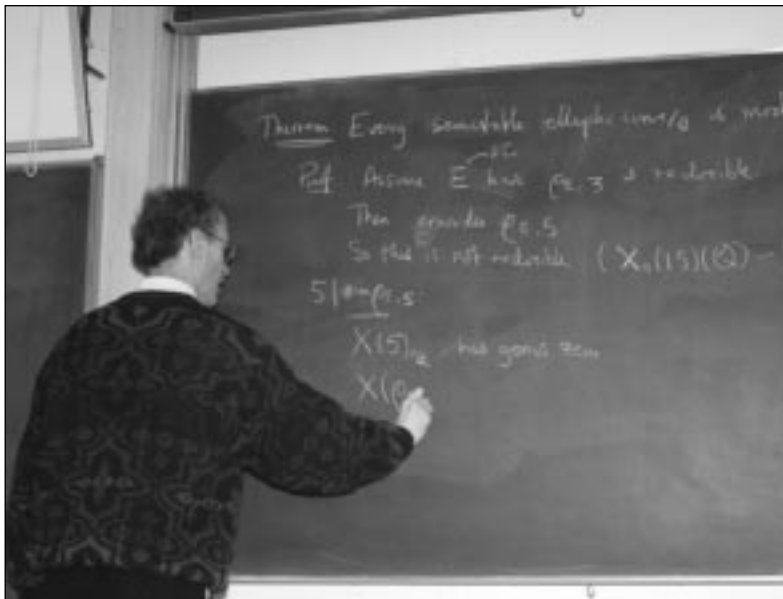 Theorem Every semistable elliptic curve/Q is mod
Proof Assume E has ρE,3 is reducible
Then consider ρE,5
So this is not reducible (X₀(15)(Q)
5 | #im ρE,5
X(5)/Q has genus zero
X(ρ